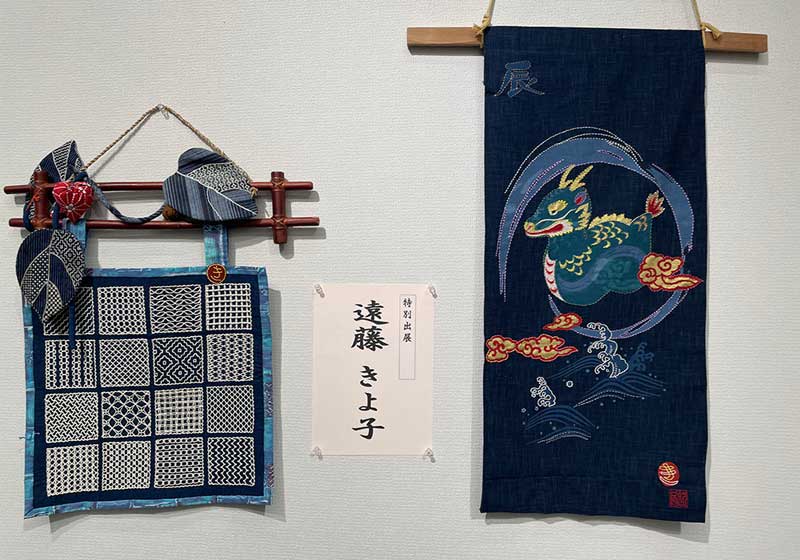 辰
特別出展
遠藤 きよ子